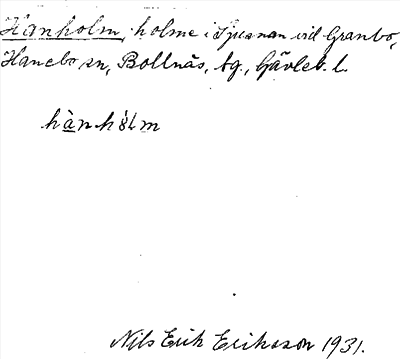 Hanholm, holme i Ljusnan vid Granbo,
Hanebo sn, Bollnäs, tg., Gävleb. l.
hànhólm
Nils Erik Eriksson 1931.